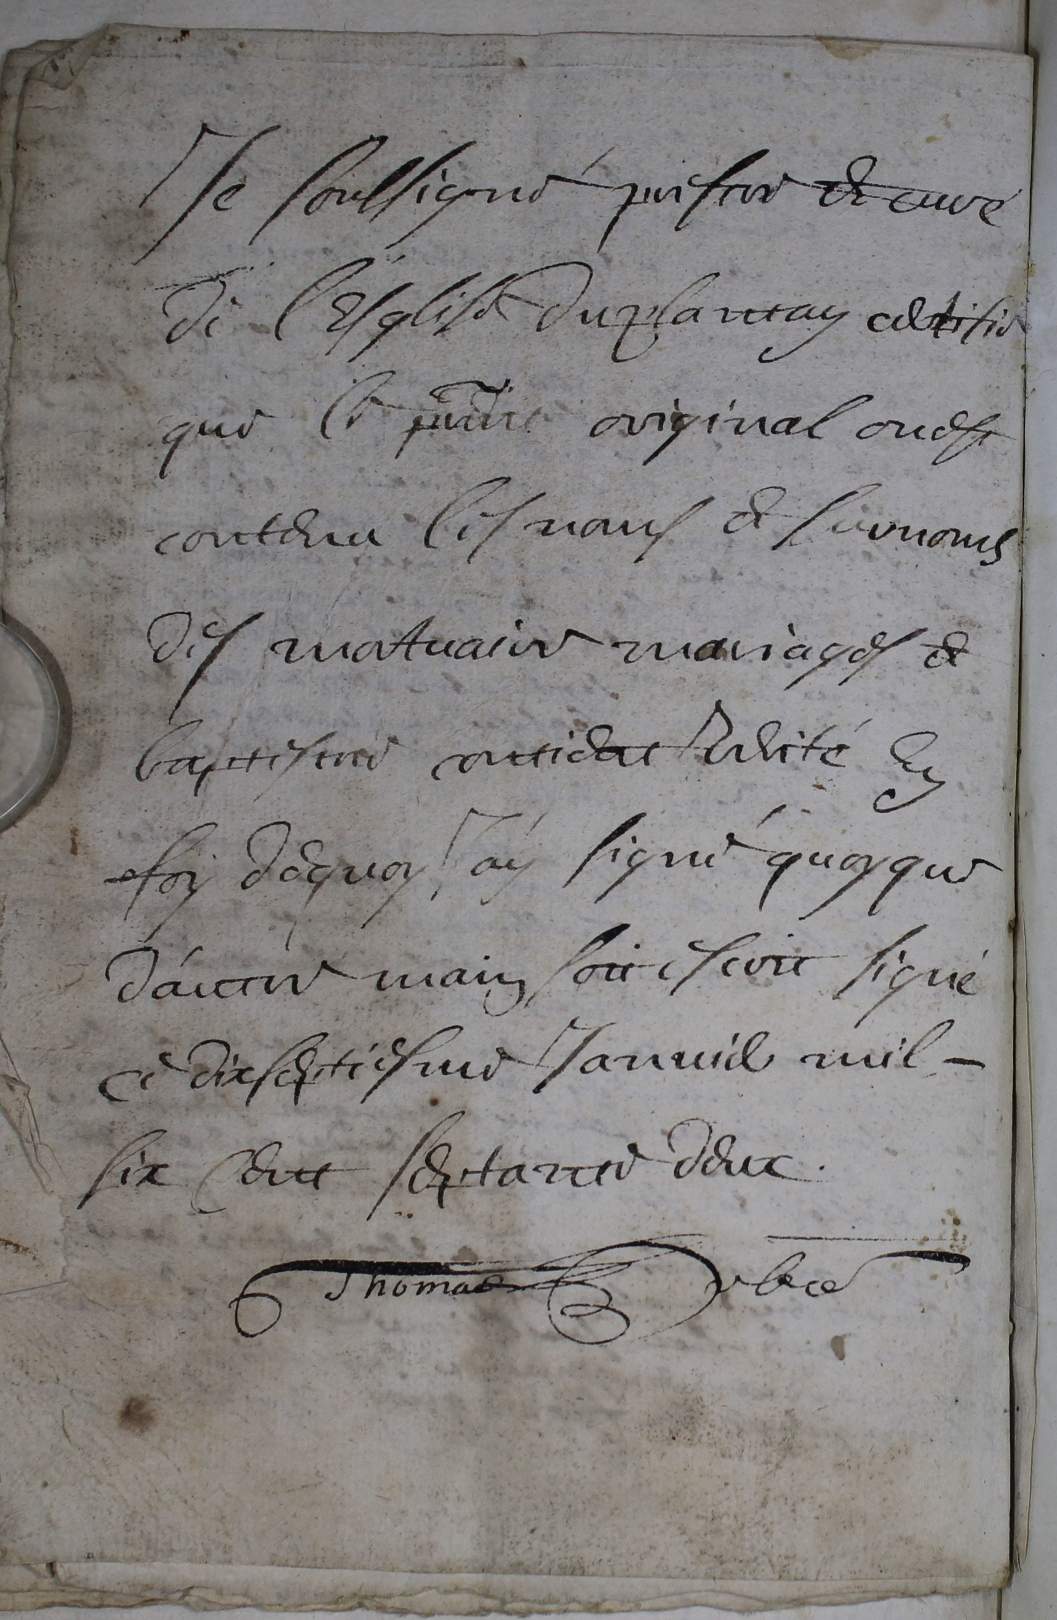 Je soubsigné prestre et curé
de l'Esglise du plantay certifie
que le pnt original ou est
contenu les noms et surnoms
des mortuaire mariages et
baptistere contient verité En
foy dequoy J'ay signé quoyque
d'autre main soit escrit signé
ce dixseptiesme Janvier mil -
six cent septante deux.
Thomas